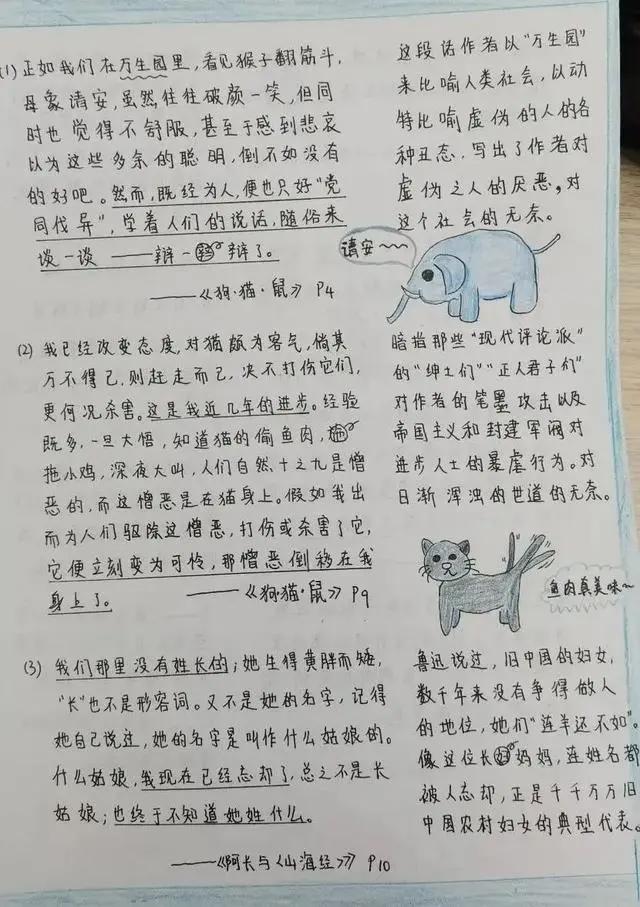 (1) 正如我们在万生园里,看见猴子翻筋斗,
母象请安,虽然往往破颜一笑,但同
时也觉得不舒服,甚至于感到悲哀
以为这些多余的聪明,倒不如没有
的好吧。然而,既经为人,便也只好"党
同伐异",学着人们的说话,随俗来
谈一谈——辩一辩了。
——《狗·猫·鼠》 P4
这段话作者以"万生园"
来比喻人类社会,以动
特比喻虚伪的人的各
种丑态,写出了作者对
虚伪之人的厌恶,对
这个社会的无奈。
请安~~
(2) 我已经改变态度,对猫颇为客气,倘其
万不得已,则赶走而已,决不打伤它们,
更何况杀害。这是我近几年的进步。经验
既多,一旦大悟,知道猫的偷鱼肉,
拖小鸡,深夜大叫,人们自然十之九是憎
恶的,而这憎恶是在猫身上。假如我出
而为人们驱除这憎恶,打伤或杀害了它,
它便立刻变为可怜,那憎恶倒移在我
身上了。 ——《狗·猫·鼠》 P9
暗指那些"现代评论派"
的"绅士们""正人君子们"
对作者的笔墨攻击以及
帝国主义和封建军阀对
进步人士的暴虐行为。对
日渐浑浊的世道的无奈。
鱼肉真美味~
(3) 我们那里没有姓长的;她生得黄胖而矮,
"长"也不是形容词。又不是她的名字,记得
她自己说过,她的名字是叫作什么姑娘的。
什么姑娘,我现在已经忘却了,总之不是长
姑娘;也终于不知道她姓什么。
——《阿长与《山海经》》 P10
鲁迅说过,旧中国的妇女,
数千年来没有争得做人
的地位,她们"连羊还不如"。
像这位长妈妈,连姓名都
被人忘却,正是千千万万旧
中国农村妇女的典型代表。